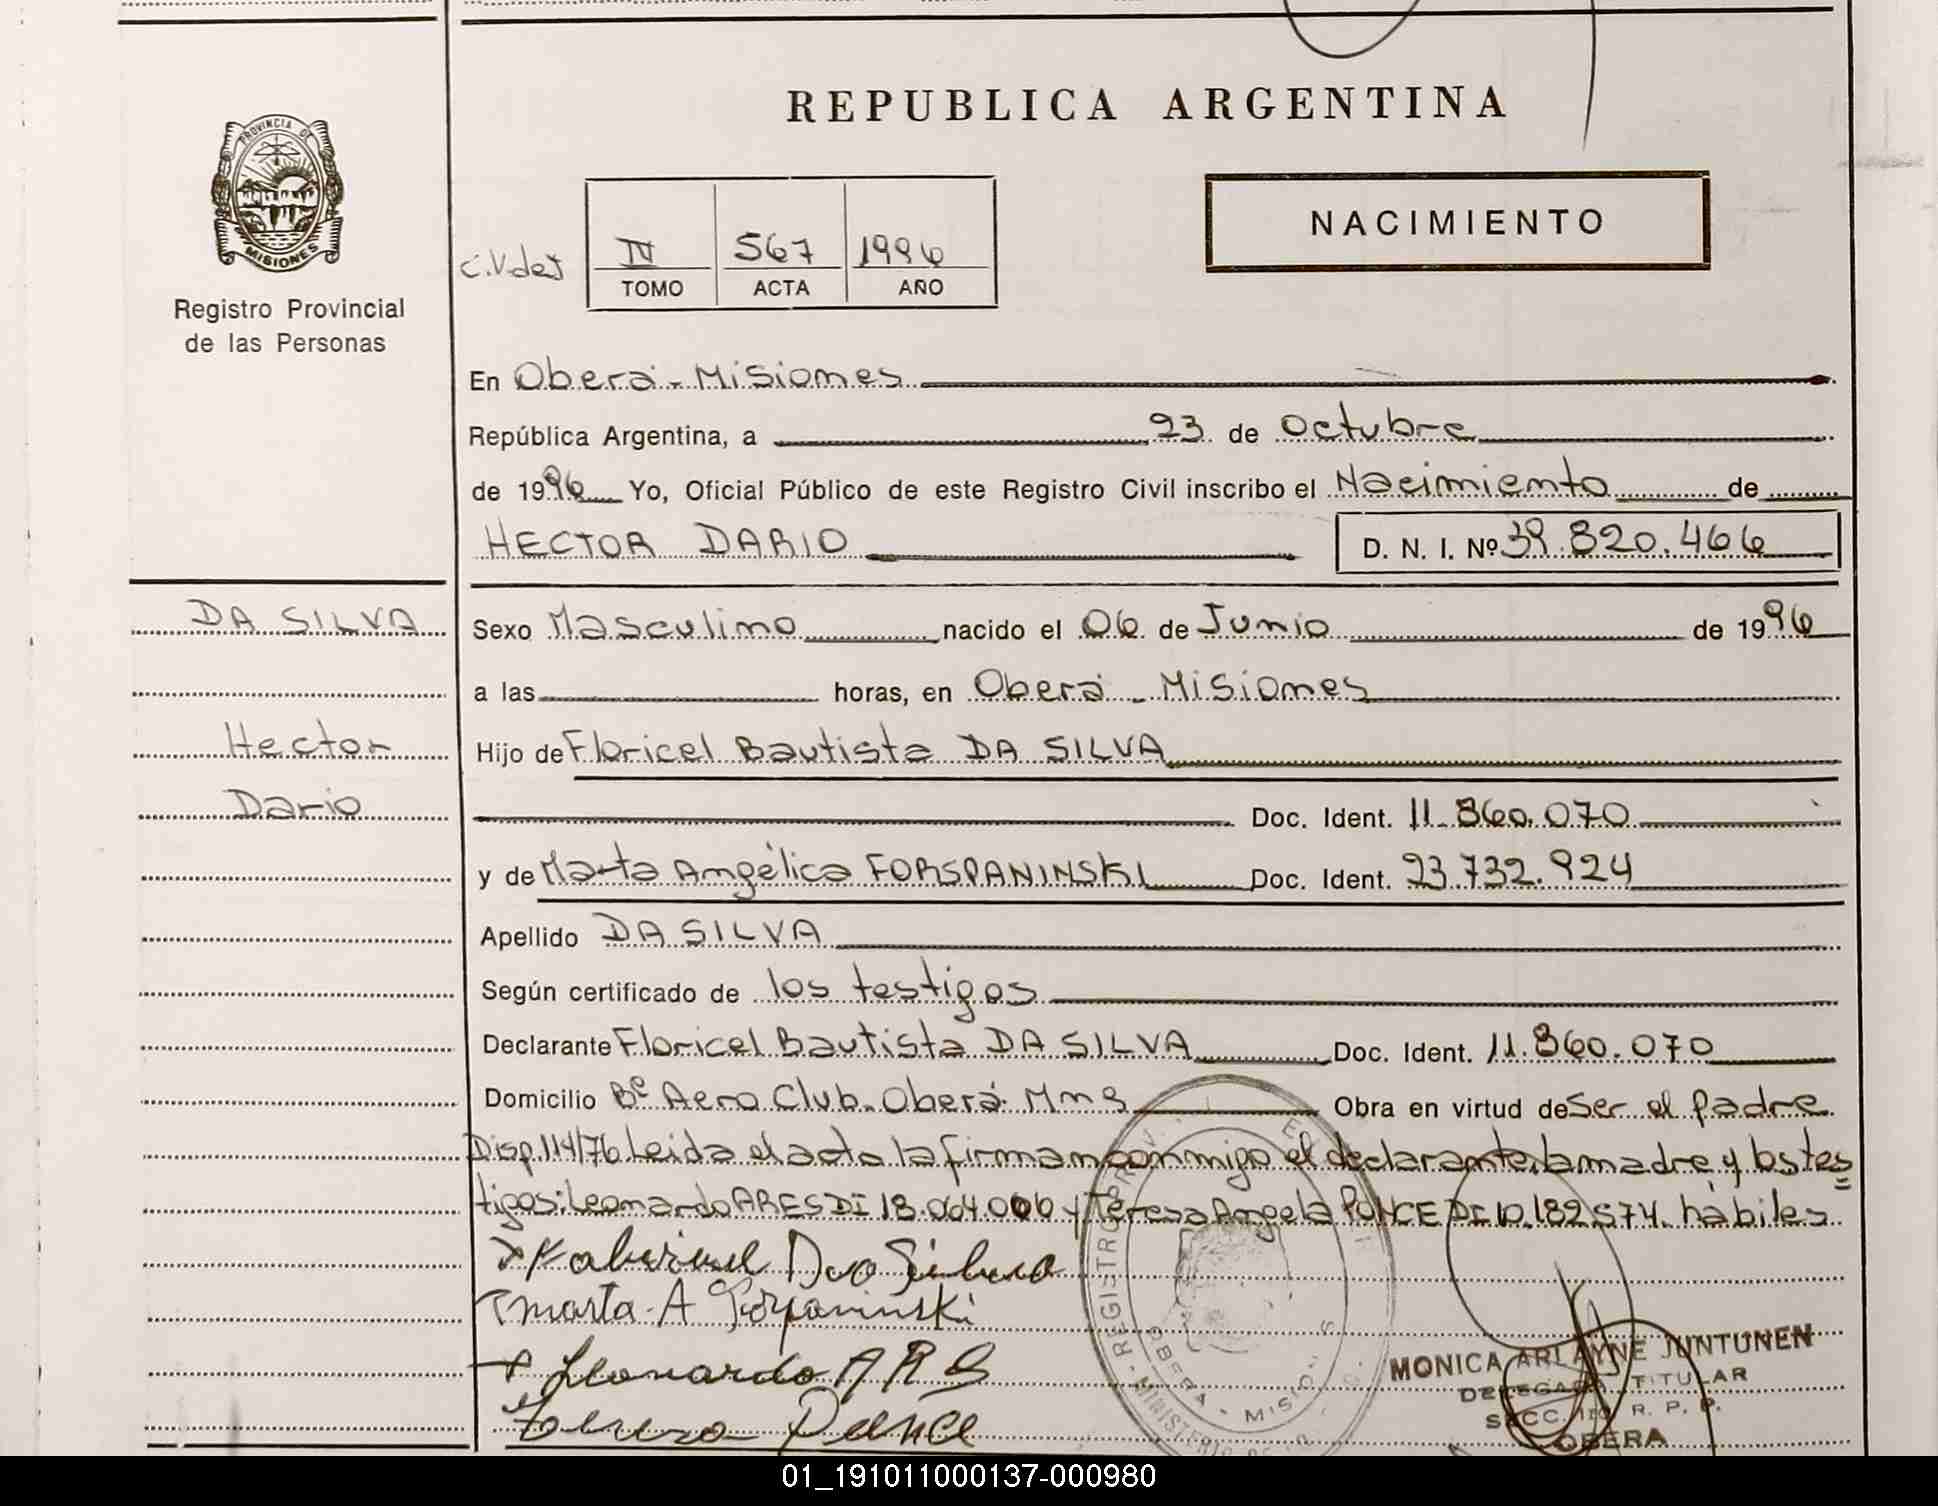 REPUBLICA ARGENTINA
PROVINCIA DE
MISIONES
Registro Provincial
de las Personas
NACIMIENTO
IV 567 1996
TOMO ACTA AÑO
En Oberá - Misiones
República Argentina, a 23 de Octubre
de 1996 Yo, Oficial Público de este Registro Civil inscribo el Nacimiento de
HECTOR DARIO D. N. I. Nº 39.820.466
DA SILVA
Hector
Dario
Sexo Masculino nacido el 06 de Junio de 1996
a las horas, en Oberá - Misiones
Hijo de Floricel Bautista DA SILVA
Doc. Ident. 11.860.070
y de Marta Angélica FORSPANINSKI Doc. Ident. 23.732.924
Apellido DA SILVA
Según certificado de los testigos
Declarante Floricel Bautista DA SILVA Doc. Ident. 11.860.070
Domicilio Bº Aero Club. Oberá. Mns Obra en virtud de ser el padre
Disp. 114/76 Leida el acta la firman conmigo el declarante, la madre y los tes
tigos: Leonardo ARES DI 18.064.006 y Teresa Angela PONCE DI 10.182.574. hábiles
Da Silva
Marta A
Leonardo ARS
Ponce
MONICA ARLAYNE JUNTUNEN
DELEGADA TITULAR
SECC. 1ra R. P. P.
OBERA
01_191011000137-000980